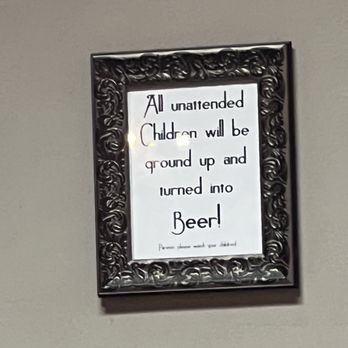 All unattended
Children will be
ground up and
turned into
Beer!
Parents please watch your children!